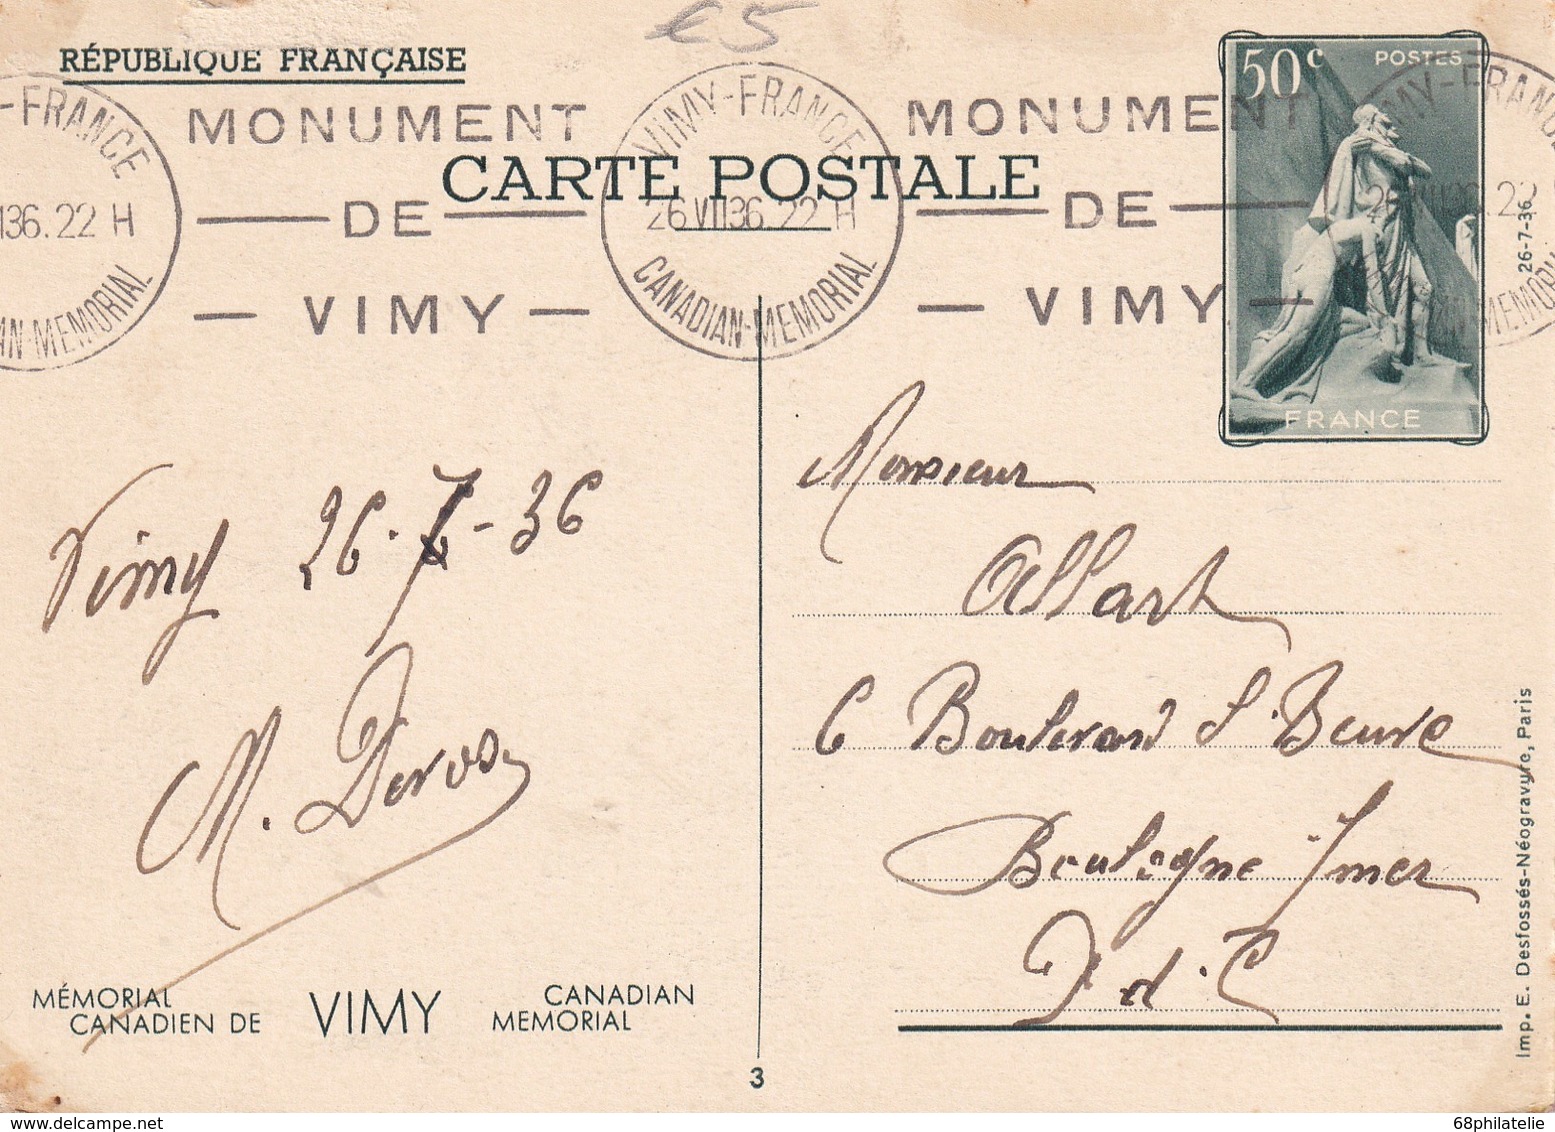 €5
RÉPUBLIQUE FRANÇAISE
CARTE POSTALE
50c POSTES
FRANCE
26-7-36
-FRANCE
136.22 H
AN-MEMORIAL
MONUMENT
DE
VIMY
VIMY-FRANCE
26 VII36.22 H
CANADIAN-MEMORIAL
MONUMENT
DE
VIMY
Vimy 26-7-36
M. Deros
Monsieur
Allart
6 Boulevard St Beuve
Boulogne s/mer
P d C
MÉMORIAL
CANADIEN DE
VIMY
CANADIAN
MEMORIAL
3
Imp. E. Desfossés-Néogravure, Paris
68philatelie
delcampe.net